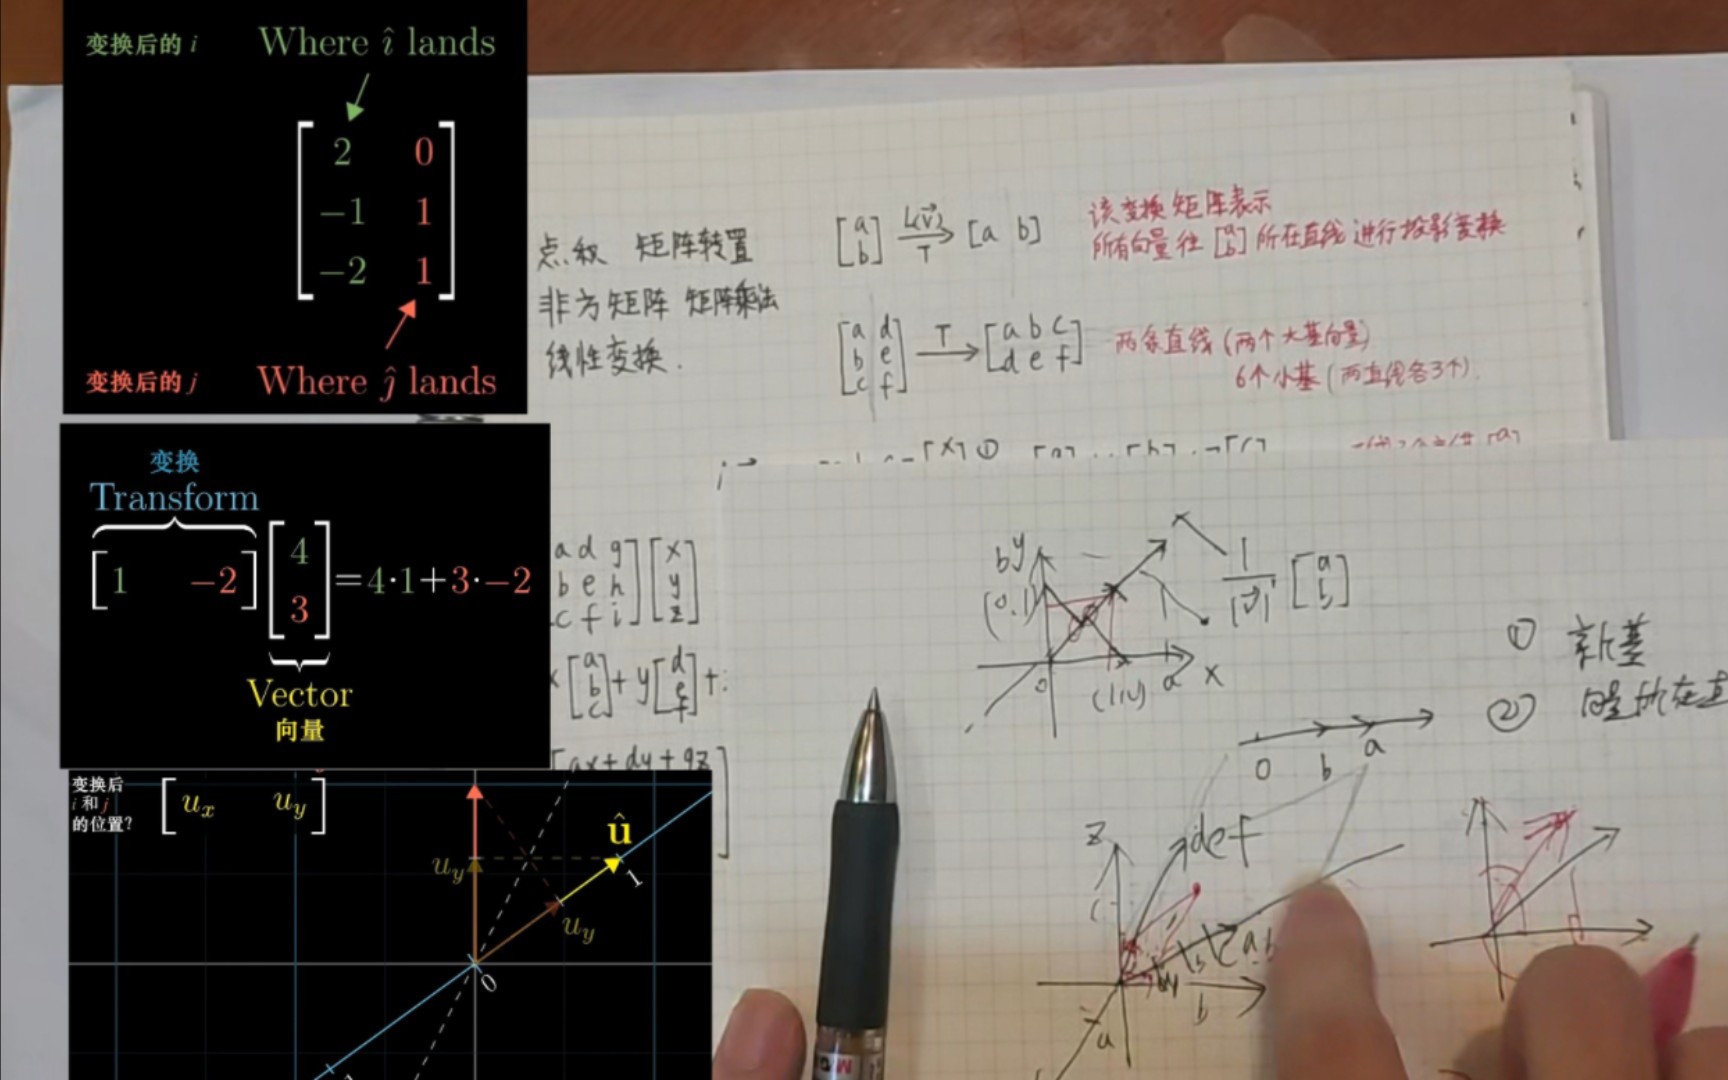 变换后的 i Where î lands
[2 0
-1 1
-2 1]
变换后的 j Where ĵ lands
变换
Transform
[1 -2] [4 3] = 4·1+3·-2
Vector
向量
变换后
i 和 j
的位置?
[u_x u_y]
û
u_y
u_y
1
0
点积 矩阵转置
非方矩阵 矩阵乘法
线性变换.
[a b] L(v⃗) → T [a b]
该变换矩阵表示
所有向量往 [a b] 所在直线进行投影变换
[a d
b e
c f] T → [a b c
d e f]
两条直线 (两个大基向量)
6个小基 (两直线各3个).
a d g
b e h
c f i] [x y z]
x [a b c] + y [d e f] +
[ax+dy+gz
b y
(0.1)
0
a x
1/|v⃗| [a b]
① 新基
②
0 b a
z
def
b
a